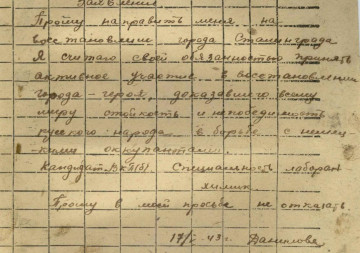 Заявление
Прошу направить меня на
восстановление города Сталинграда
Я считаю своей обязанностью принять
активное участие в восстановлении
города-героя, доказавшего всему
миру стойкость и непобедимость
русского народа в борьбе с немец-
кими оккупантами.
Кандидат ВКП(б) Специальность лаборан
химик
Прошу в моей просьбе не отказать
17/I-43 г. Данилова